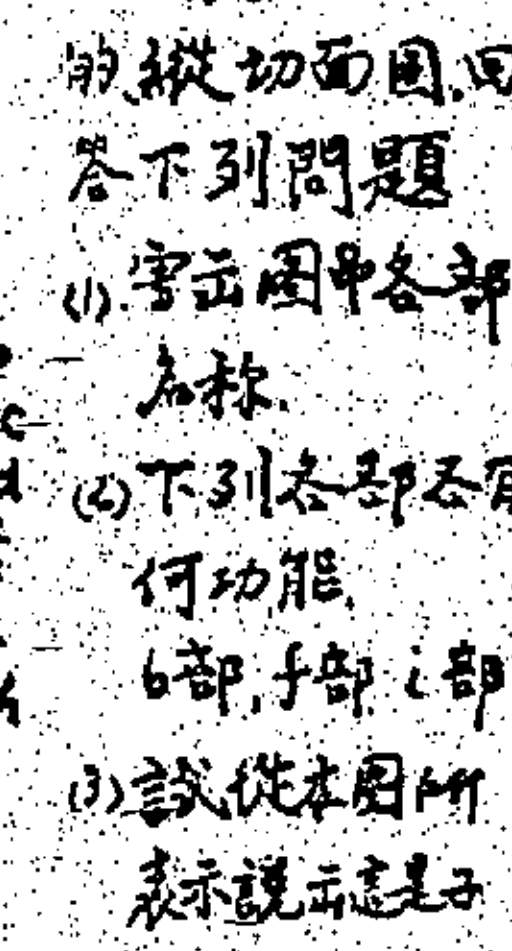 的縱切面圖.回
答下列問題
(1).寫出圖中各部
名称.
(2)下列各部各有
何功能.
b部,f部,i部
(3)試從本圖所
表示說出這是子